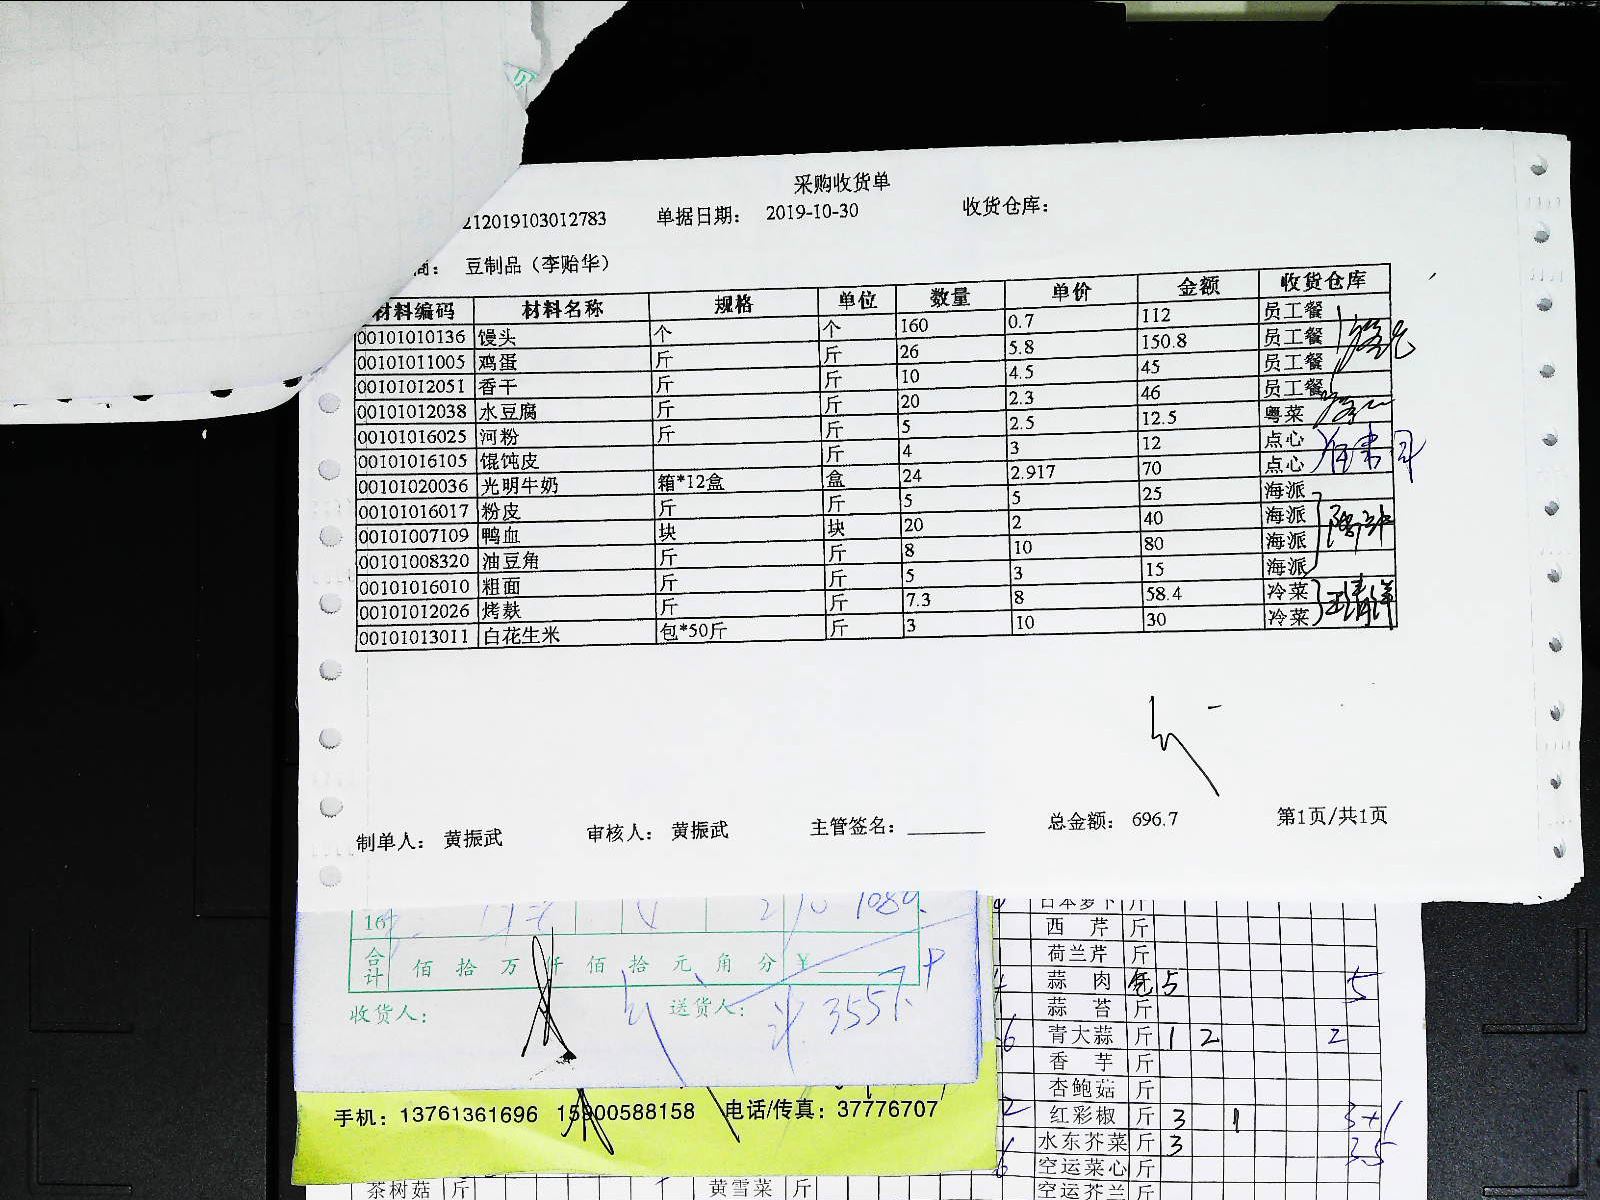 采购收货单
212019103012783 单据日期： 2019-10-30 收货仓库：
商： 豆制品（李贻华）
材料编码 材料名称 规格 单位 数量 单价 金额 收货仓库
00101010136 馒头 个 个 160 0.7 112 员工餐
00101011005 鸡蛋 斤 斤 26 5.8 150.8 员工餐
00101012051 香干 斤 斤 10 4.5 45 员工餐
00101012038 水豆腐 斤 斤 20 2.3 46 员工餐
00101016025 河粉 斤 斤 5 2.5 12.5 粤菜
00101016105 馄饨皮 斤 4 3 12 点心
00101020036 光明牛奶 箱*12盒 盒 24 2.917 70 点心
00101016017 粉皮 斤 斤 5 5 25 海派
00101007109 鸭血 块 块 20 2 40 海派
00101008320 油豆角 斤 斤 8 10 80 海派
00101016010 粗面 斤 斤 5 3 15 海派
00101012026 烤麸 斤 斤 7.3 8 58.4 冷菜
00101013011 白花生米 包*50斤 斤 3 10 30 冷菜
制单人： 黄振武 审核人： 黄振武 主管签名： 总金额： 696.7 第1页/共1页
16
合计 佰 拾 万 仟 佰 拾 元 角 分 ￥
收货人： 送货人：
手机：13761361696 15900588158 电话/传真：37776707
日本萝卜 斤
西芹 斤
荷兰芹 斤
蒜肉 包 5 5
蒜苔 斤
青大蒜 斤 1 2 2
香芋 斤
杏鲍菇 斤
红彩椒 斤 3 1 3+1
水东芥菜 斤 3 3.5
空运菜心 斤
茶树菇 斤 黄雪菜 斤 空运芥兰 斤